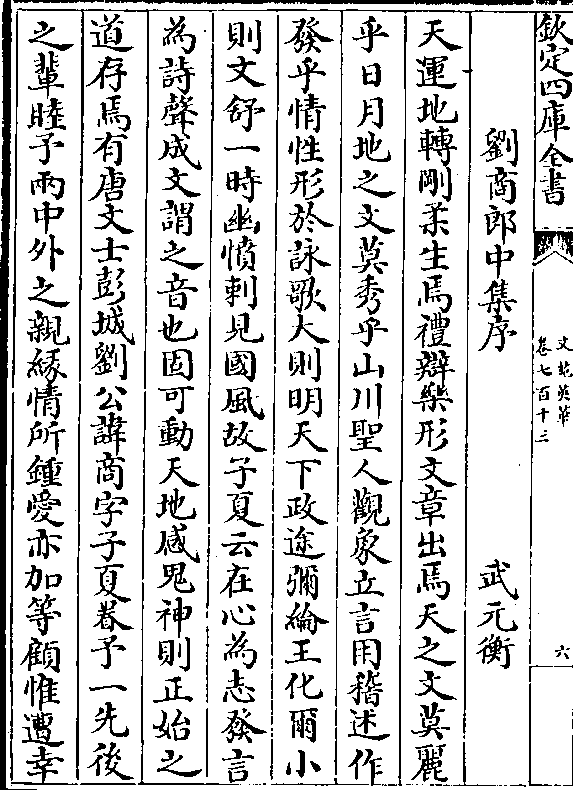 欽定四庫全書
文苑英華
卷七百十三
六
劉商郎中集序 武元衡
天運地轉剛柔生焉禮辯樂形文章出焉天之文莫麗
乎日月地之文莫秀乎山川聖人觀象立言用稽述作
發乎情性形於詠歌大則明天下政途彌綸王化爾小
則文舒一時幽憤刺見國風故子夏云在心為志發言
為詩聲成文謂之音也固可動天地感鬼神則正始之
道存焉有唐文士彭城劉公諱商字子夏眷予一先後
之輩睦予兩中外之親緣情所鍾愛亦加等顧惟遭幸